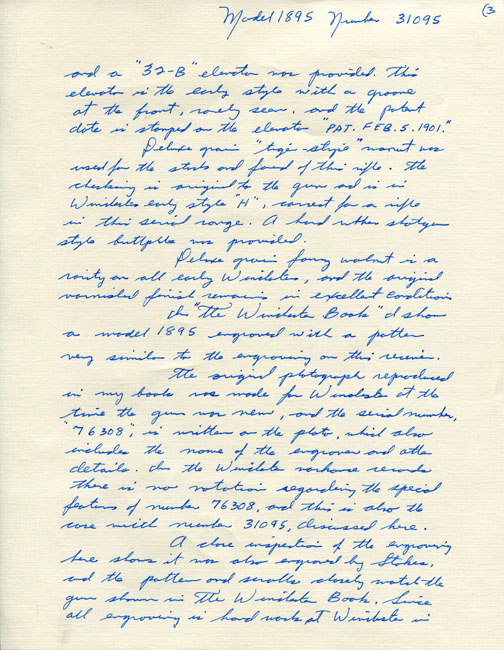 Model 1895 Number 31095 (3
and a "32-B" elevator was provided. This
elevator is the early style with a groove
at the front, rarely seen, and the patent
date is stamped on the elevator "PAT. FEB. 5. 1901."
Deluxe grain "tiger-stripe" walnut was
used for the stock and forend of this rifle. The
checkering is original to the gun and is in
Winchesters early style "H", correct for a rifle
in this serial range. A hard rubber shotgun
style buttplate was provided.
Deluxe grain fancy walnut is a
rarity on all early Winchesters, and the original
varnished finish remains in excellent condition.
In "The Winchester Book" I show
a model 1895 engraved with a pattern
very similar to the engraving on this receiver.
The original photograph reproduced
in my book was made for Winchester at the
time the gun was new, and the serial number,
"76308", is written on the photo, which also
includes the name of the engraver and other
details. In the Winchester warehouse records
there is no notation regarding the special
features of number 76308, and this is also the
case with number 31095, discussed here.
A close inspection of the engraving
here shows it was also engraved by Stokes,
and the pattern and scrolls closely match the
gun shown in The Winchester Book. Since
all engraving is hand work at Winchester in